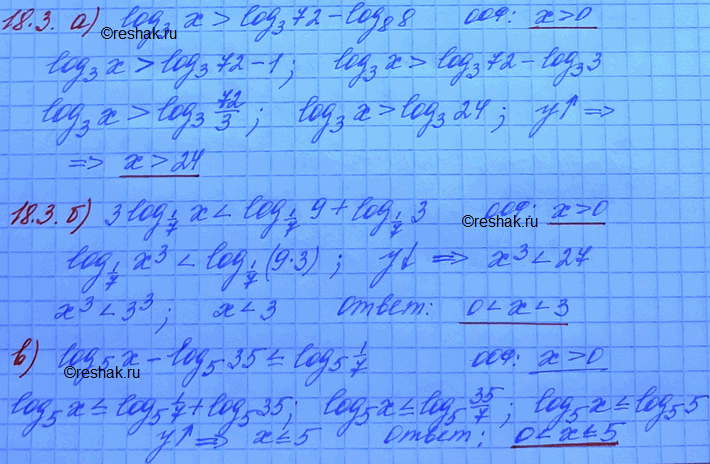 18.3. а) log₃ x > log₃ 72 – log₈ 8 ООФ: x>0
©reshak.ru
log₃ x > log₃ 72 – 1 ; log₃ x > log₃ 72 – log₃ 3
log₃ x > log₃ 72/3 ; log₃ x > log₃ 24 ; y↑ ⇒
⇒ x > 24
18.3. б) 3 log_{1/7} x < log_{1/7} 9 + log_{1/7} 3 ООФ: x>0
©reshak.ru
log_{1/7} x³ < log_{1/7} (9·3) ; y↓ ⇒ x³ < 27
x³ < 3³ ; x < 3 ответ: 0 < x < 3
в) log₅ x – log₅ 35 ≤ log₅ 1/7 ООФ: x>0
©reshak.ru
log₅ x ≤ log₅ 1/7 + log₅ 35; log₅ x ≤ log₅ 35/7 ; log₅ x ≤ log₅ 5
y↑ ⇒ x ≤ 5 ответ: 0 < x ≤ 5